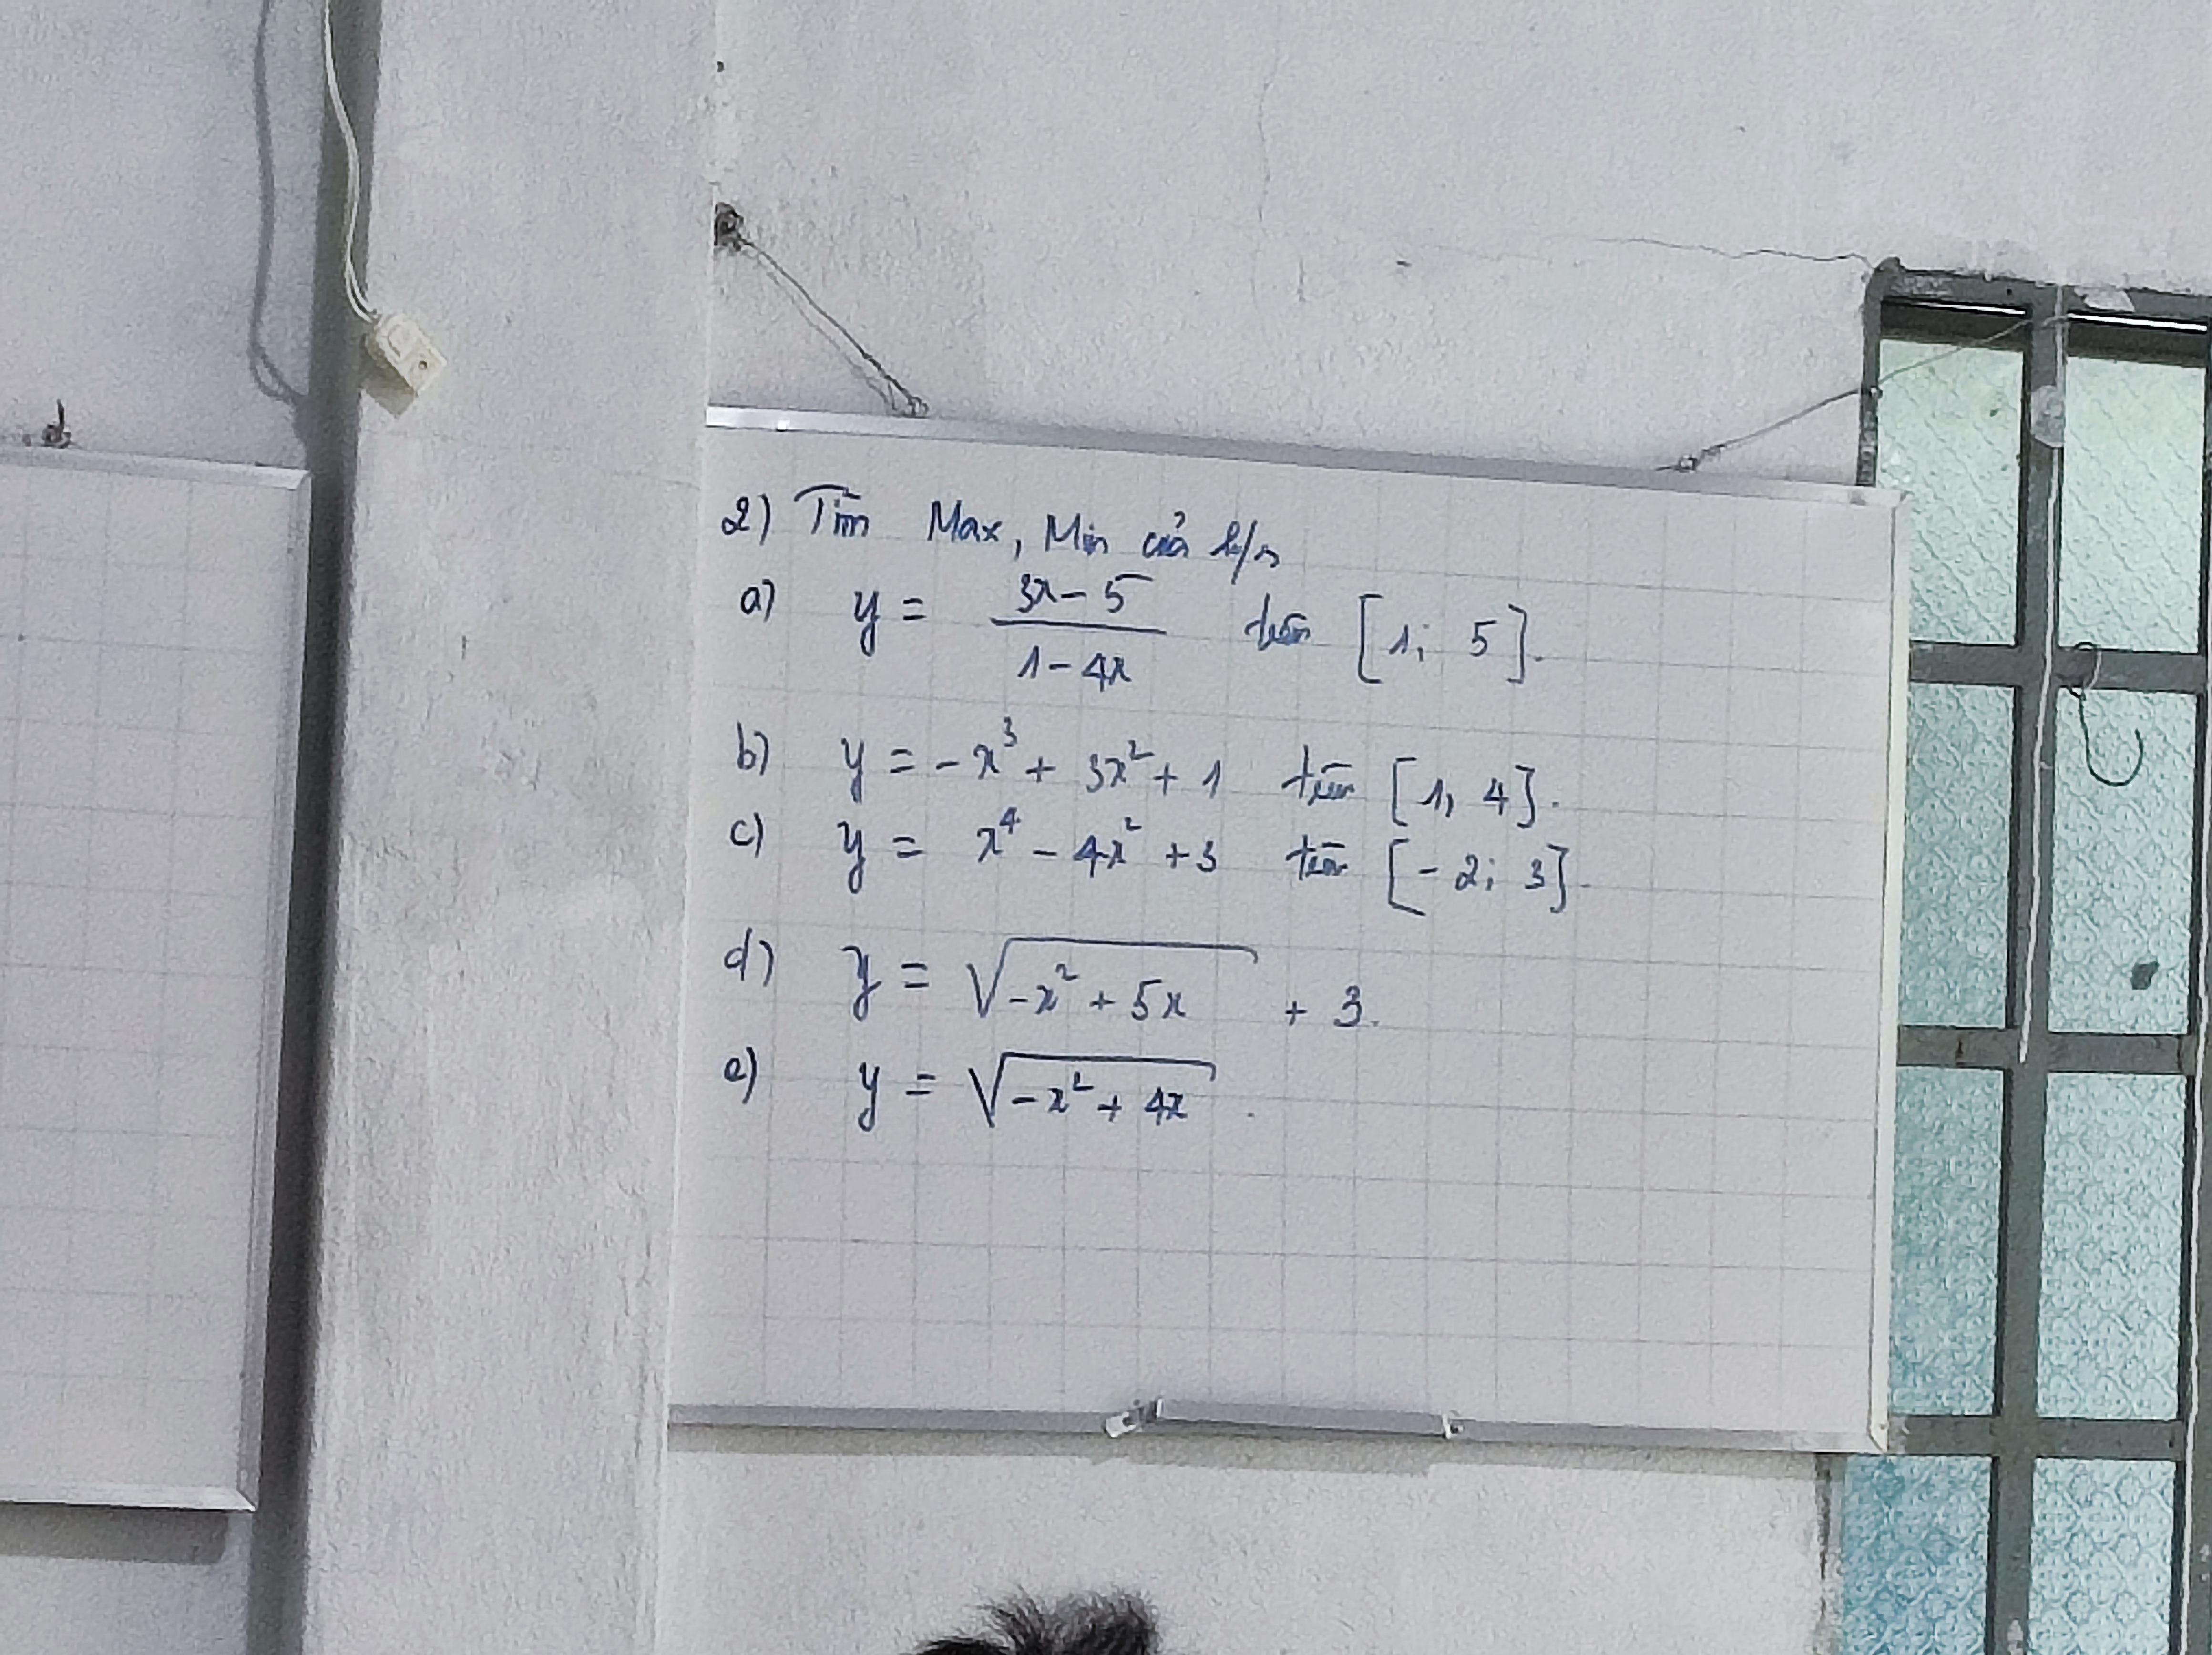 2) Tìm Max, Min của h/s
a) y = \frac{3x-5}{1-4x} trên [1; 5].
b) y = -x³ + 3x² + 1 trên [1, 4].
c) y = x⁴ - 4x² + 3 trên [-2; 3].
d) y = √(-x² + 5x) + 3.
e) y = √(-x² + 4x).